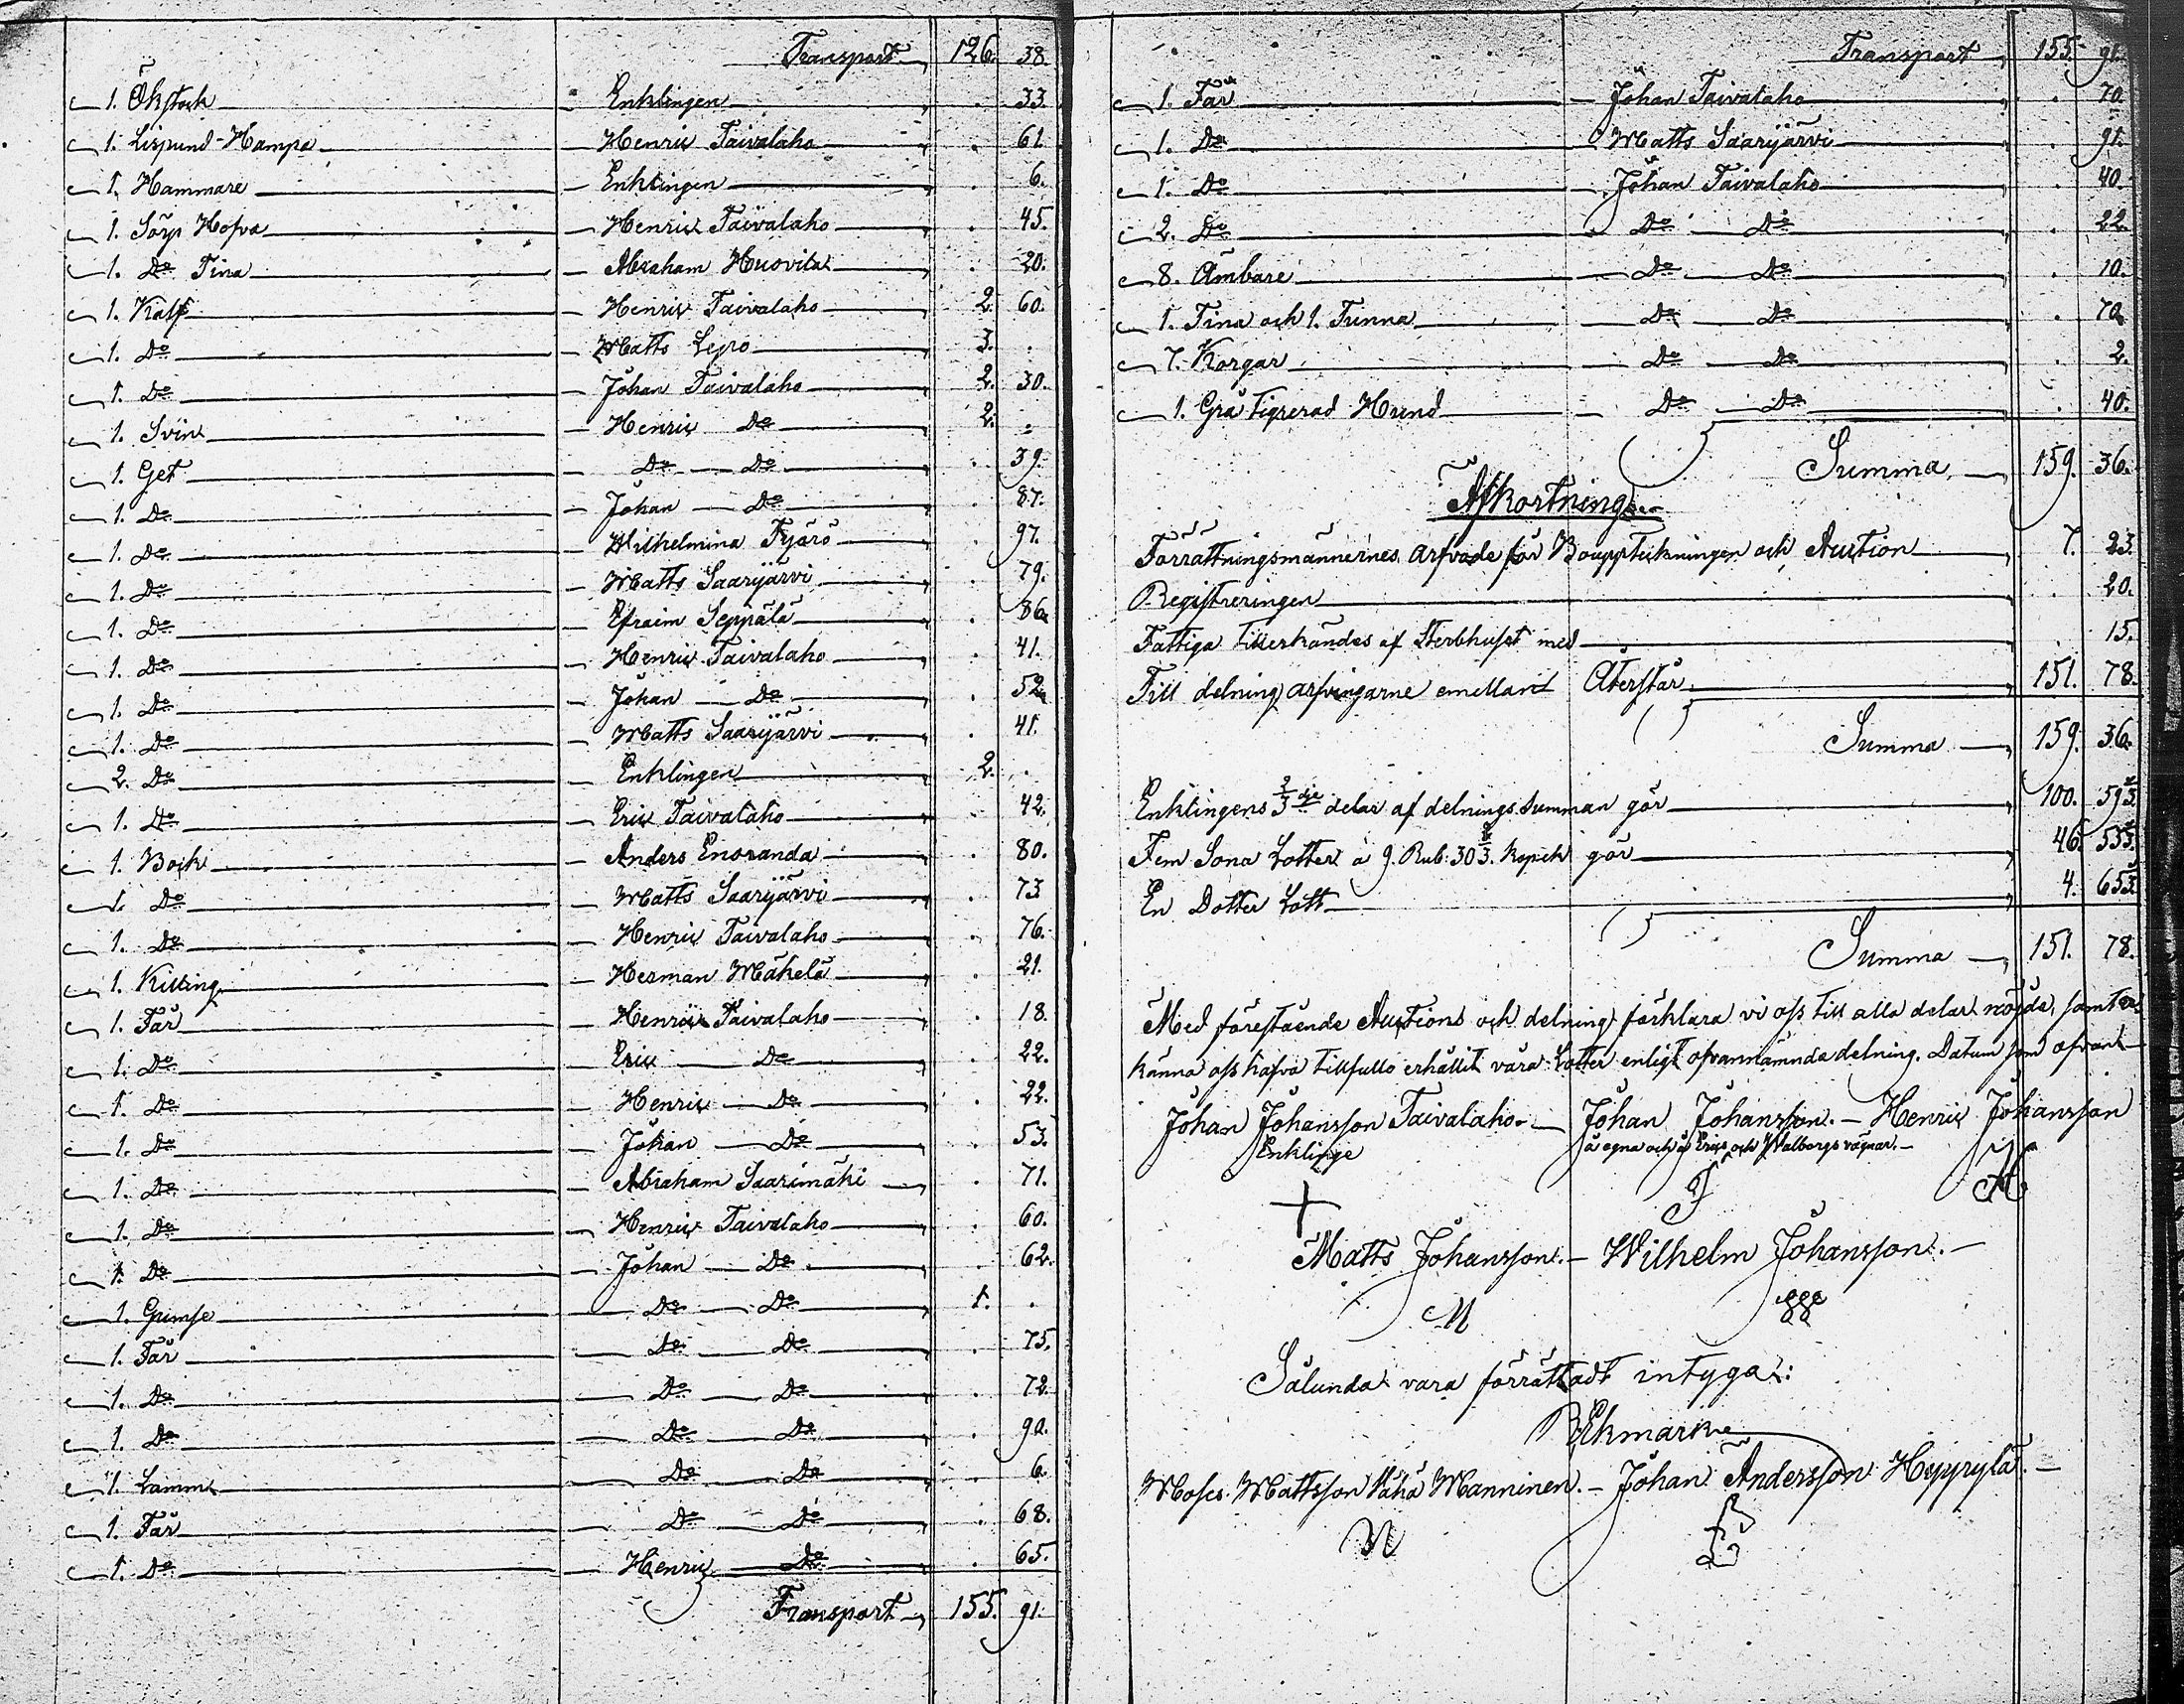 Transport 126. 38.
1. Ökstock Enklingen . 33.
1. Lispund-Hampa Henric Taivalaho . 61.
1. Hammare Enklingen . 6.
1. Sörp Hofva Henric Taivalaho . 45.
1. Do Tina Abraham Huovila . 20.
1. Kalf Henric Taivalaho 2. 60.
1. Do Matts Lepo 3. .
1. Do Johan Taivalaho 2. 30.
1. Svin Henric Do 2. .
1. Get Do Do . 39.
1. Do Johan Do . 87.
1. Do Wilhelmina Fyärö . 97.
1. Do Matts Saarijärvi . 79.
1. Do Efraim Seppälä . 86.
1. Do Henric Taivalaho . 41.
1. Do Johan Do . 52.
1. Do Matts Saarijärvi . 41.
2. Do Enklingen 2. .
1. Do Eric Taivalaho . 42.
1. Bock Anders Enoranda . 80.
1. Do Matts Saarijärvi . 73
1. Do Henric Taivalaho . 76.
1. Killing Herman Mäkelä . 21.
1. Får Henric Taivalaho . 18.
1. Do Eric Do . 22.
1. Do Henric Do . 22.
1. Do Johan Do . 53.
1. Do Abraham Saarimäki . 71.
1. Do Henric Taivalaho . 60.
1. Do Johan Do . 62.
1. Gumse Do Do 1. .
1. Får Do Do . 75.
1. Do Do Do . 72.
1. Do Do Do . 90.
1. Lamm Do Do . 6.
1. Får Do Do . 68.
1. Do Henric Do . 65.
Transport 155. 91.
Transport 155. 91.
1. Får Johan Taivalaho . 70.
1. Do Matts Saarijärvi . 91.
1. Do Johan Taivalaho . 40.
2. Do Do Do . 22.
8. Ämbare Do Do . 10.
1. Tina och 1. Tunna Do Do . 70.
7. Korgar Do Do . 2.
1. Grå tigrerad Hund Do Do . 40.
Summa 159. 36.
Afkortning
Förrättningsmännernes arfvode för Bouppteckningen och Auction 7. 23.
Registreringen . 20.
Fattiga tillerkändes af Sterbhuset med . 15.
Till delning arfvingarne emellan Återstår 151. 78.
Summa 159. 36.
Enklingens 2/3 dje delar af delnings Summan gör 100. 59
Fem Sona Lotter à 9. Rub: 30 2/3. Kopek gör 46. 53
En Dotter Lott 4. 65
Summa 151. 78.
Med förestående Auctions och delning förklara vi oss till alla delar nöjde, samt er
känna oss hafva tillfullo erhållit våra Lotter enligt ofvannämnda delning. Datum som ofvan
Johan Johansson Taivalaho Johan Johansson. Henric Johansson
Enklinge å egna och å Erics och Walborgs vägnar.
J H
Matts Johansson. Wilhelm Johansson.
M
Sålunda vara förrättadt intyga:
Ekmark
Moses Mattsson Vähä Manninen. Johan Andersson Hyyrylä.